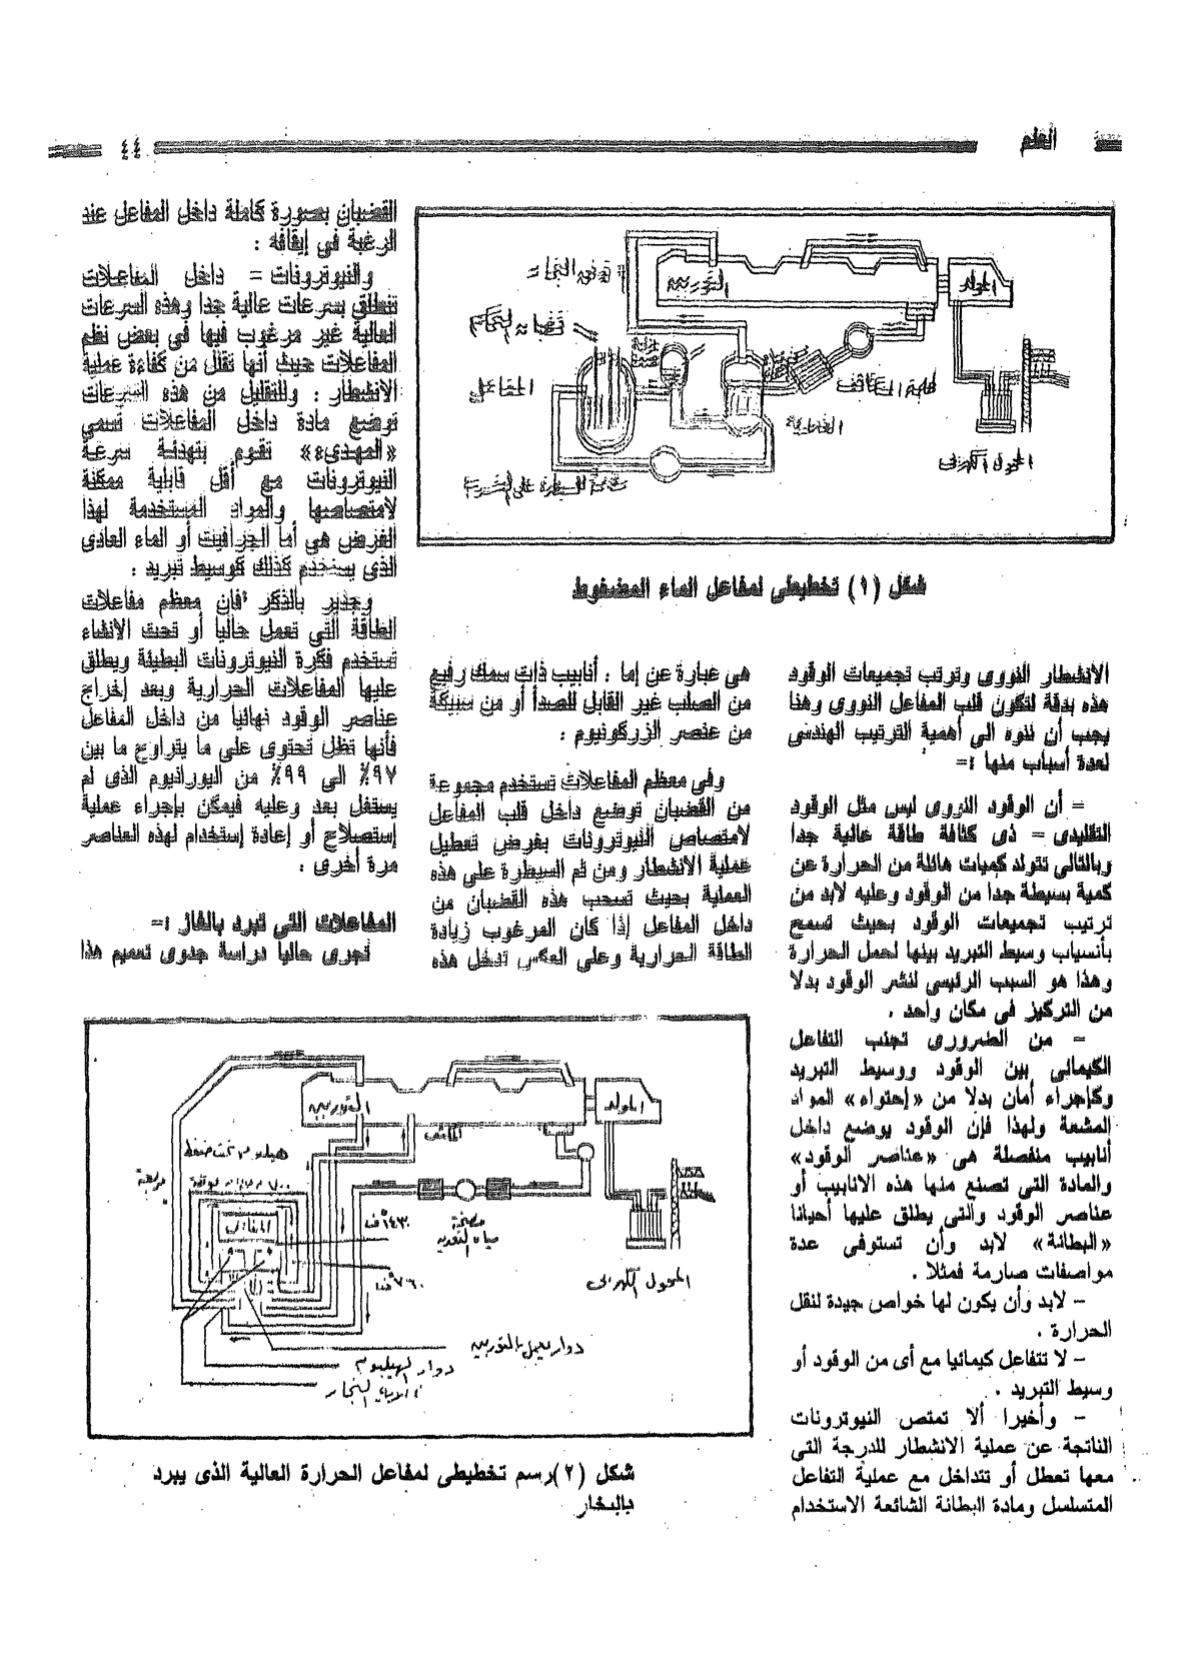 العلم
٤٤
التوربين
المولد
قضبان التحكم
المفاعل
المحول الكهربى
شكل (١) تخطيطى لمفاعل الماء المضغوط
الانشطار النووى وترتب تجميعات الوقود
هذه بدقة لتكون قلب المفاعل النووى وهنا
يجب أن ننوه الى أهمية الترتيب الهندسى
لعدة أسباب منها :-
- أن الوقود النووى ليس مثل الوقود
التقليدى - ذى كثافة طاقة عالية جدا
وبالتالى تتولد كميات هائلة من الحرارة عن
كمية بسيطة جدا من الوقود وعليه لابد من
ترتيب تجميعات الوقود بحيث تسمح
بأنسياب وسيط التبريد بينها لحمل الحرارة
وهذا هو السبب الرئيسى لنشر الوقود بدلا
من التركيز فى مكان واحد .
- من الضرورى تجنب التفاعل
الكيمائى بين الوقود ووسيط التبريد
وكإجراء أمان بدلا من «إحتواء» المواد
المشعة ولهذا فإن الوقود يوضع داخل
أنابيب منفصلة هى «عناصر الوقود»
والمادة التى تصنع منها هذه الانابيب أو
عناصر الوقود والتى يطلق عليها أحيانا
«البطانة» لابد وأن تستوفى عدة
مواصفات صارمة فمثلا .
- لابد وأن يكون لها خواص جيدة لنقل
الحرارة .
- لا تتفاعل كيمائيا مع أى من الوقود أو
وسيط التبريد .
- وأخيرا ألا تمتص النيوترونات
الناتجة عن عملية الانشطار للدرجة التى
معها تعطل أو تتداخل مع عملية التفاعل
المتسلسل ومادة البطانة الشائعة الاستخدام
هى عبارة عن إما . أنابيب ذات سمك رفيع
من الصلب غير القابل للصدأ أو من سبيكة
من عنصر الزركونيوم .
وفى معظم المفاعلات تستخدم مجموعة
من القضبان توضع داخل قلب المفاعل
لامتصاص النيوترونات بغرض تعطيل
عملية الانشطار ومن ثم السيطرة على هذه
العملية بحيث تسحب هذه القضبان من
داخل المفاعل إذا كان المرغوب زيادة
الطاقة الحرارية وعلى العكس تدخل هذه
القضبان بصورة كاملة داخل المفاعل عند
الرغبة فى إيقافه .
والنيوترونات - داخل المفاعلات
تنطلق بسرعات عالية جدا وهذه السرعات
العالية غير مرغوب فيها فى بعض نظم
المفاعلات حيث أنها تقلل من كفاءة عملية
الانشطار . وللتقليل من هذه السرعات
توضع مادة داخل المفاعلات تسمى
«المهدىء» تقوم بتهدئة سرعة
النيوترونات مع أقل قابلية ممكنة
لامتصاصها والمواد المستخدمة لهذا
الغرض هى أما الجرافيت أو الماء العادى
الذى يستخدم كذلك كوسيط تبريد .
وجدير بالذكر فان معظم مفاعلات
الطاقة التى تعمل حاليا أو تحت الانشاء
تستخدم فكرة النيوترونات البطيئة ويطلق
عليها المفاعلات الحرارية وبعد إخراج
عناصر الوقود نهائيا من داخل المفاعل
فأنها تظل تحتوى على ما يتراوح ما بين
٩٧٪ الى ٩٩٪ من اليورانيوم الذى لم
يستغل بعد وعليه فيمكن بإجراء عملية
إستصلاح أو إعادة إستخدام لهذه العناصر
مرة أخرى .
المفاعلات التى تبرد بالغاز :-
تجرى حاليا دراسة جدوى تعميم هذا
التوربين
المولد
المكثف
هيليوم تحت ضغط
المفاعل
١٤٣٠°ف
٧٦٠°ف
مضخة
مياه التغذية
المحول الكهربى
دوار يعمل بالتوربين
دوار الهيليوم
شكل (٢) رسم تخطيطى لمفاعل الحرارة العالية الذى يبرد
بالبخار